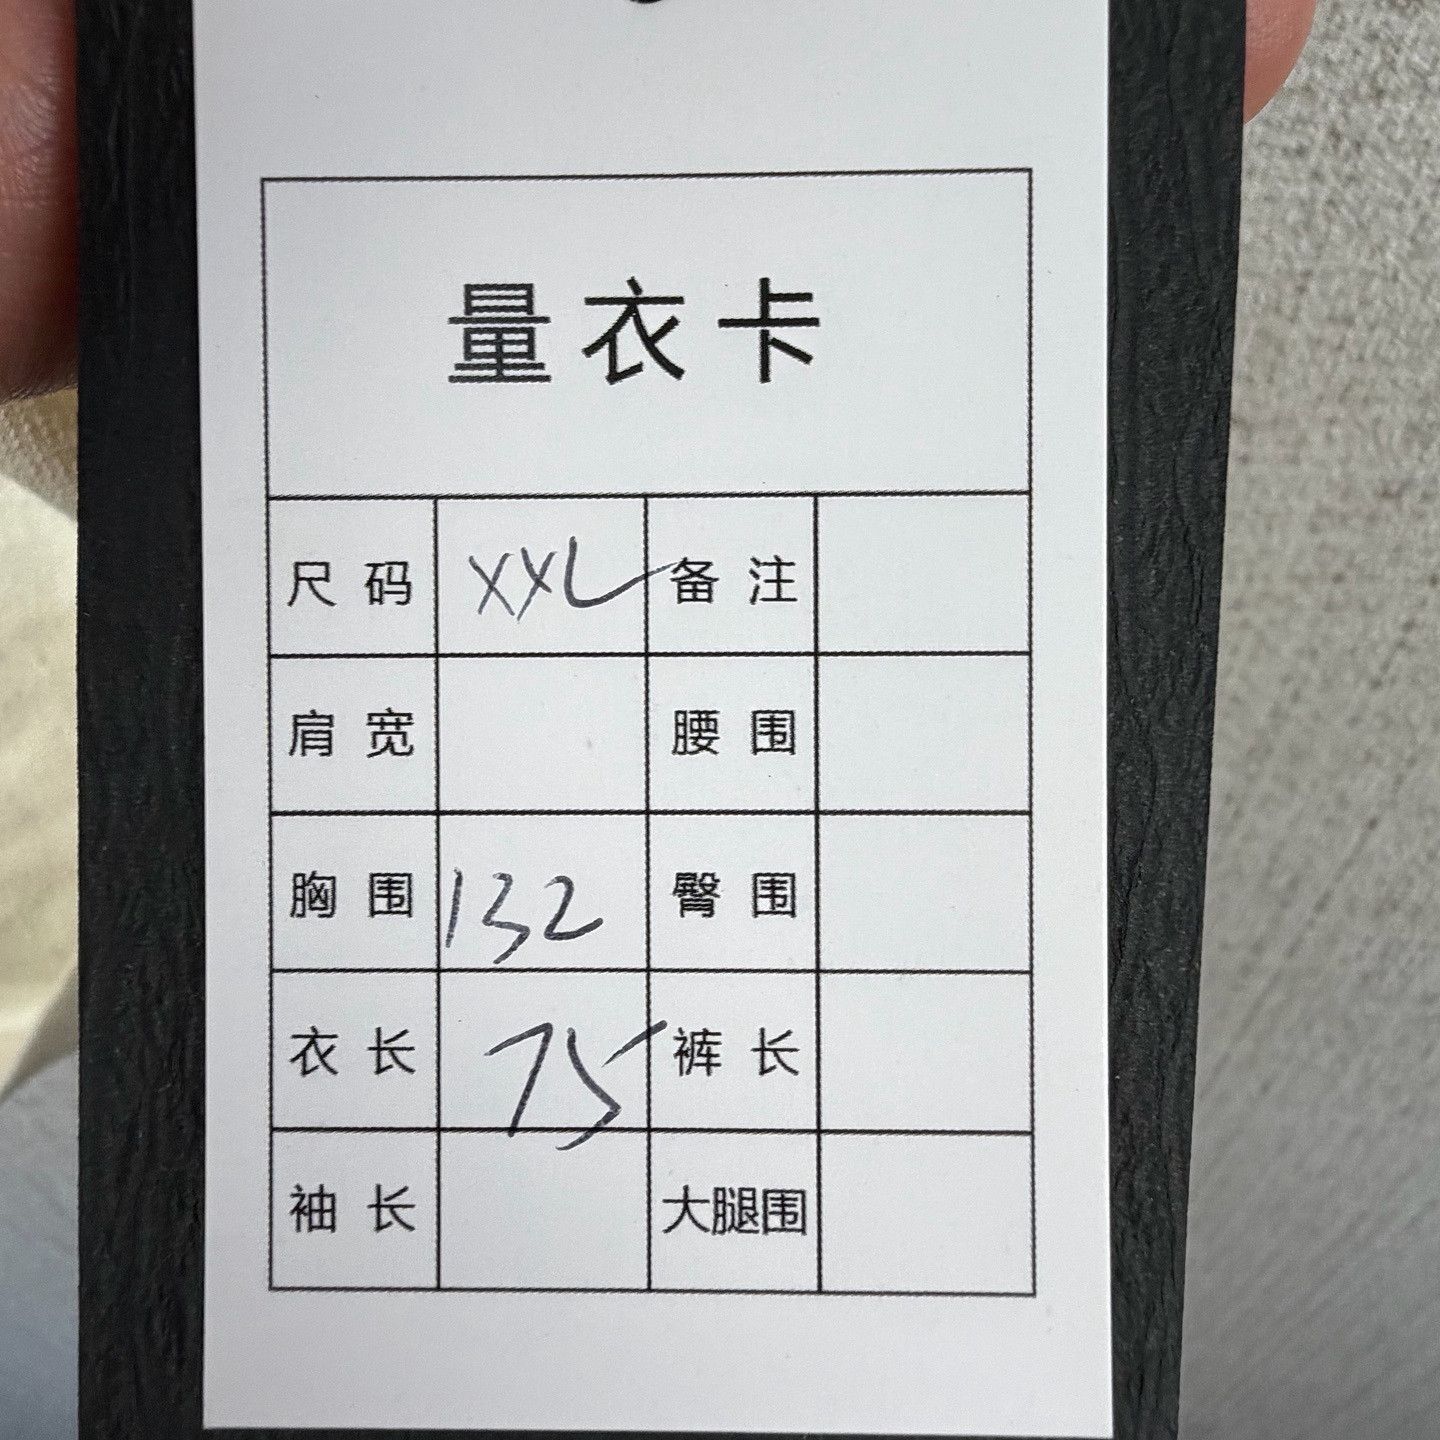 量衣卡
尺码 XXL 备注
肩宽 腰围
胸围 132 臀围
衣长 75 裤长
袖长 大腿围